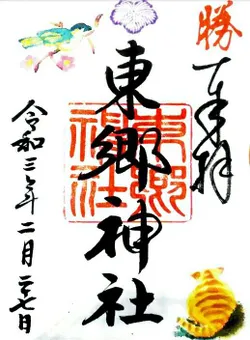 勝
奉拝
東郷神社
東郷神社
令和三年二月二十七日